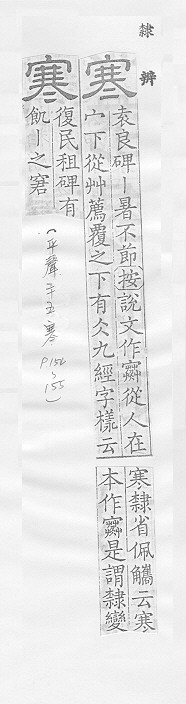 隸辨
寒
袁良碑丨暑不節按說文作從人在
宀下從艸薦覆之下有仌九經字樣云
寒隸省佩觿云寒
本作是謂隸變
寒
復民租碑有
飢丨之窘
(平聲二十五寒
P154
~
155)